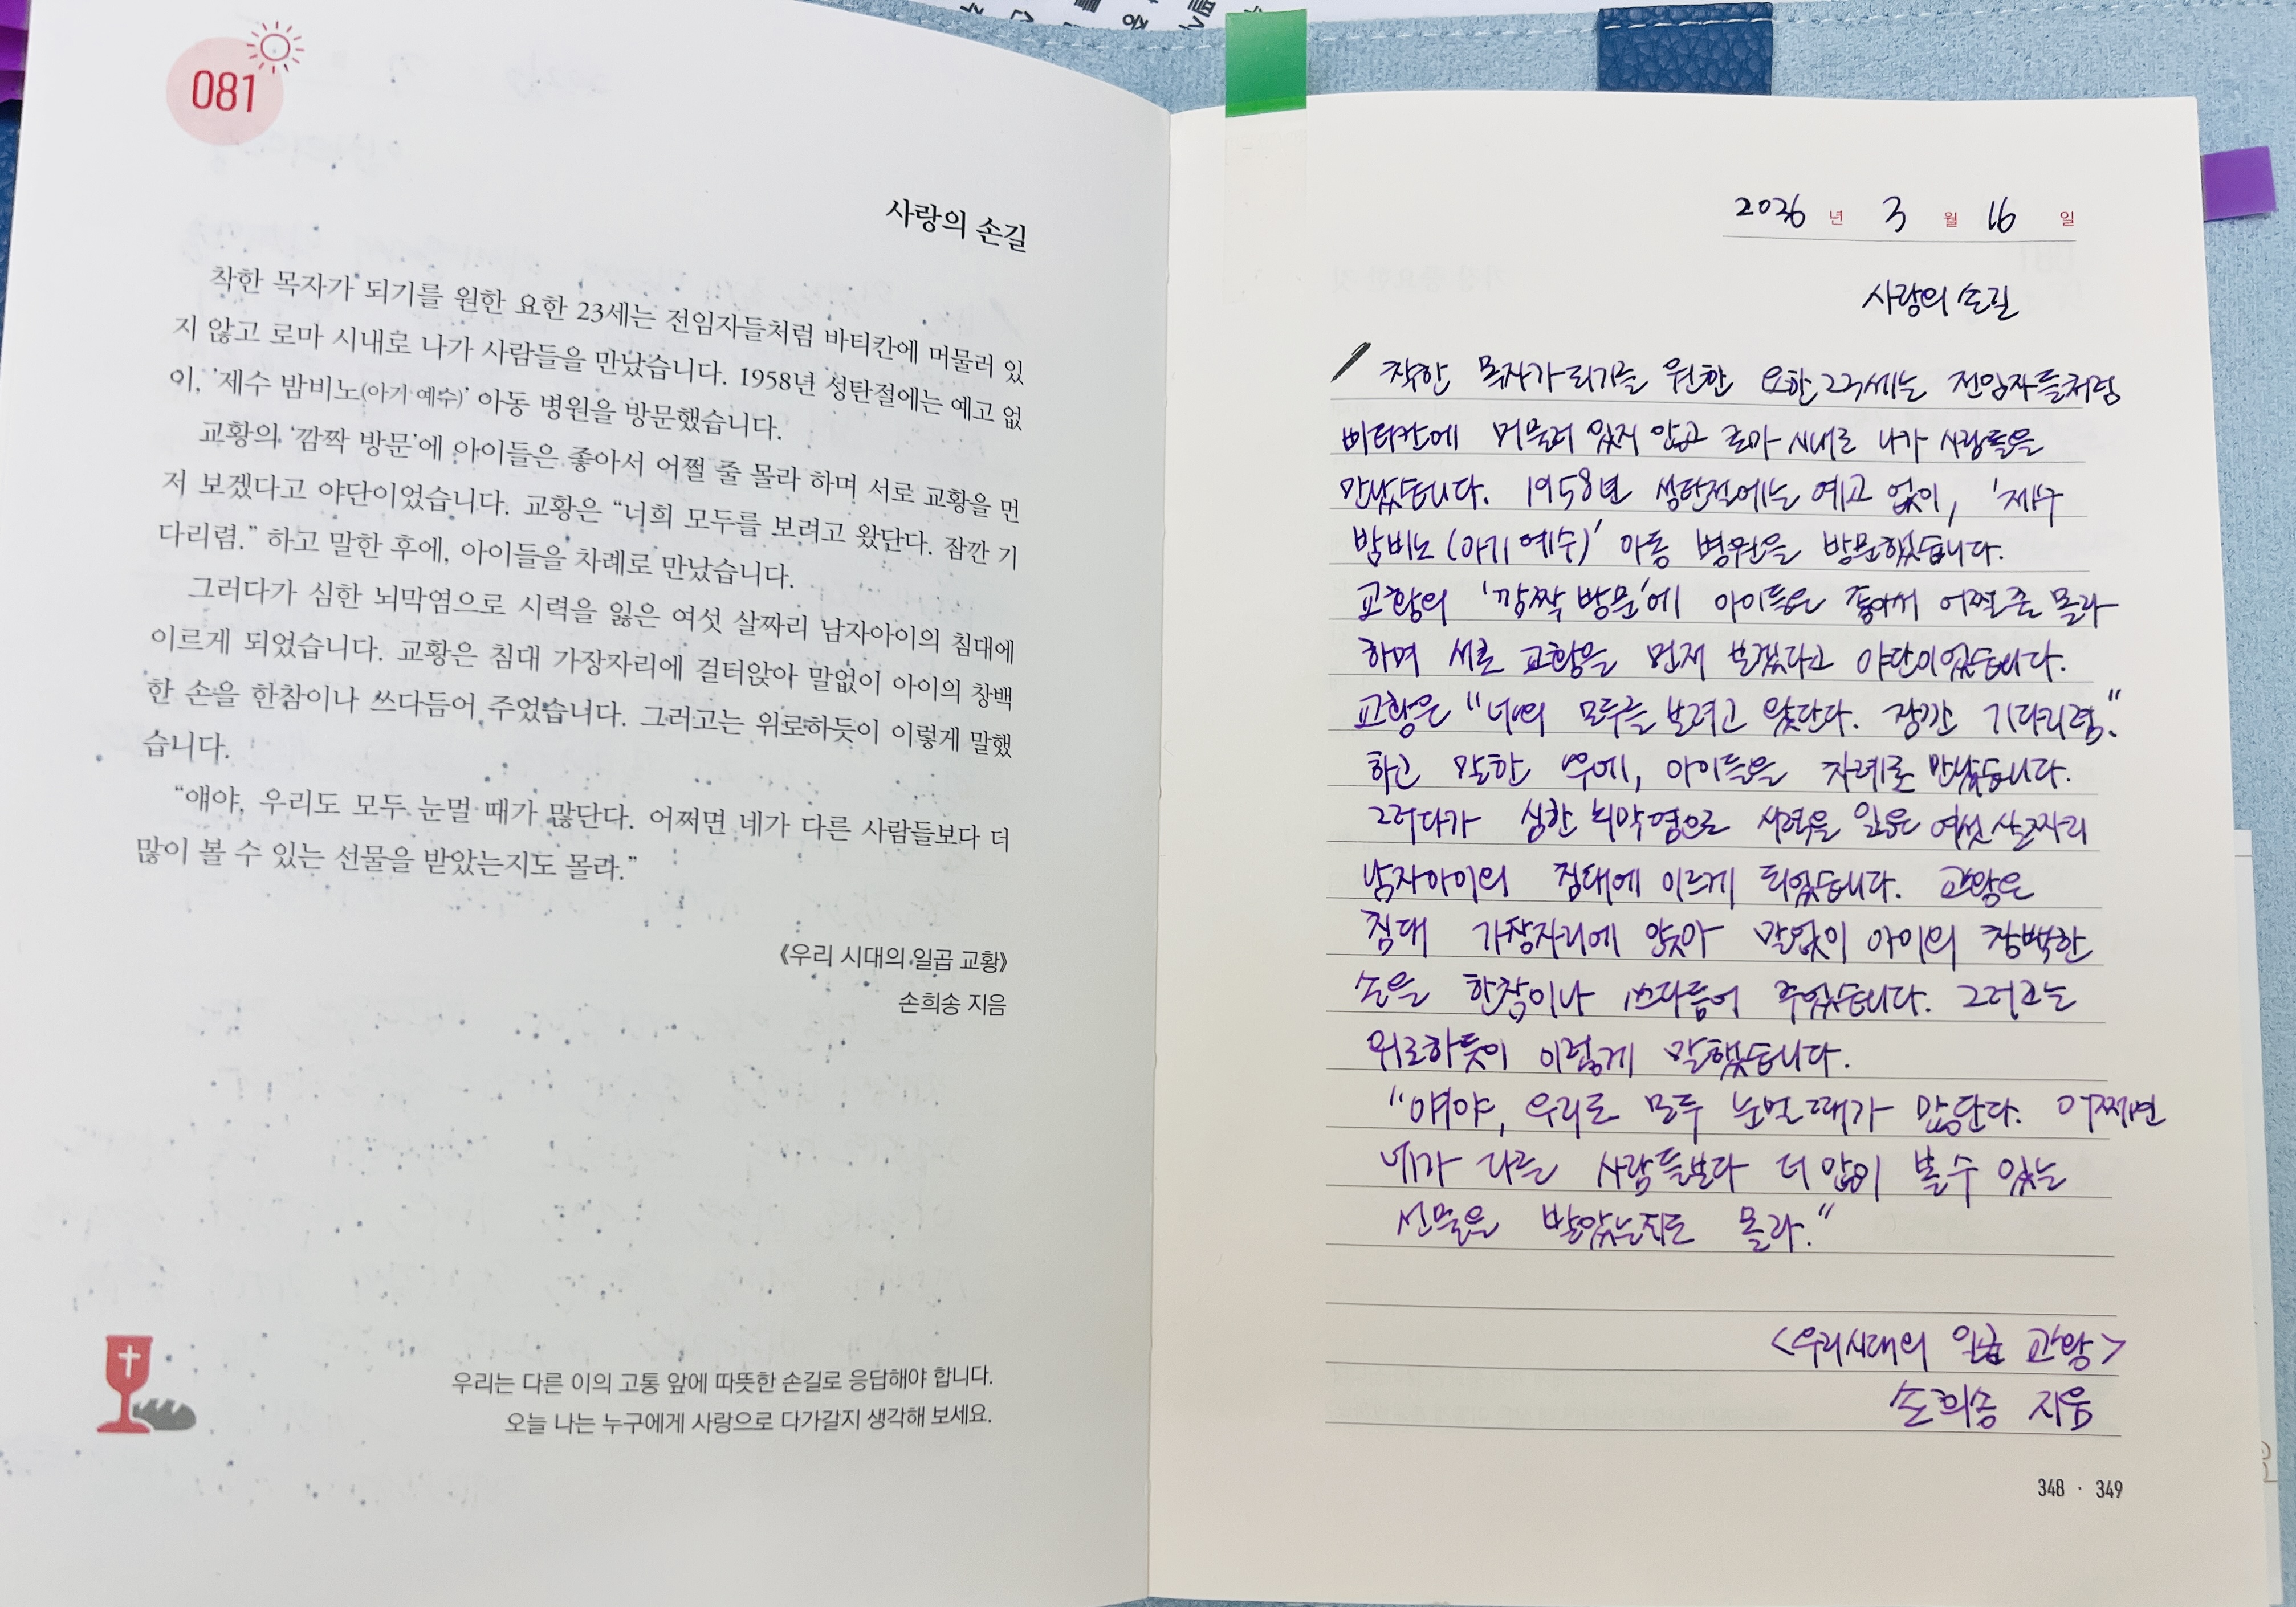 081
사랑의 손길
착한 목자가 되기를 원한 요한 23세는 전임자들처럼 바티칸에 머물러 있
지 않고 로마 시내로 나가 사람들을 만났습니다. 1958년 성탄절에는 예고 없
이, '제수 밤비노(아기 예수)' 아동 병원을 방문했습니다.
교황의 '깜짝 방문'에 아이들은 좋아서 어쩔 줄 몰라 하며 서로 교황을 먼
저 보겠다고 야단이었습니다. 교황은 “너희 모두를 보려고 왔단다. 잠깐 기
다리렴.” 하고 말한 후에, 아이들을 차례로 만났습니다.
그러다가 심한 뇌막염으로 시력을 잃은 여섯 살짜리 남자아이의 침대에
이르게 되었습니다. 교황은 침대 가장자리에 걸터앉아 말없이 아이의 창백
한 손을 한참이나 쓰다듬어 주었습니다. 그러고는 위로하듯이 이렇게 말했
습니다.
“얘야, 우리도 모두 눈멀 때가 많단다. 어쩌면 네가 다른 사람들보다 더
많이 볼 수 있는 선물을 받았는지도 몰라.”
《우리 시대의 일곱 교황》
손희송 지음
우리는 다른 이의 고통 앞에 따뜻한 손길로 응답해야 합니다.
오늘 나는 누구에게 사랑으로 다가갈지 생각해 보세요.
2026 년 3 월 16 일
사랑의 손길
착한 목자가 되기를 원한 요한 23세는 전임자들처럼
바티칸에 머물러 있지 않고 로마 시내로 나가 사람들을
만났습니다. 1958년 성탄절에는 예고 없이, '제수
밤비노 (아기 예수)' 아동 병원을 방문했습니다.
교황의 '깜짝 방문'에 아이들은 좋아서 어쩔 줄 몰라
하며 서로 교황을 먼저 보겠다고 야단이었습니다.
교황은 “너희 모두를 보려고 왔단다. 잠깐 기다리렴.”
하고 말한 후에, 아이들을 차례로 만났습니다.
그러다가 심한 뇌막염으로 시력을 잃은 여섯 살짜리
남자아이의 침대에 이르게 되었습니다. 교황은
침대 가장자리에 앉아 말없이 아이의 창백한
손을 한참이나 쓰다듬어 주었습니다. 그러고는
위로하듯이 이렇게 말했습니다.
“얘야, 우리도 모두 눈멀 때가 많단다. 어쩌면
네가 다른 사람들보다 더 많이 볼 수 있는
선물을 받았는지도 몰라.”
<우리 시대의 일곱 교황>
손희송 지음
348 · 349